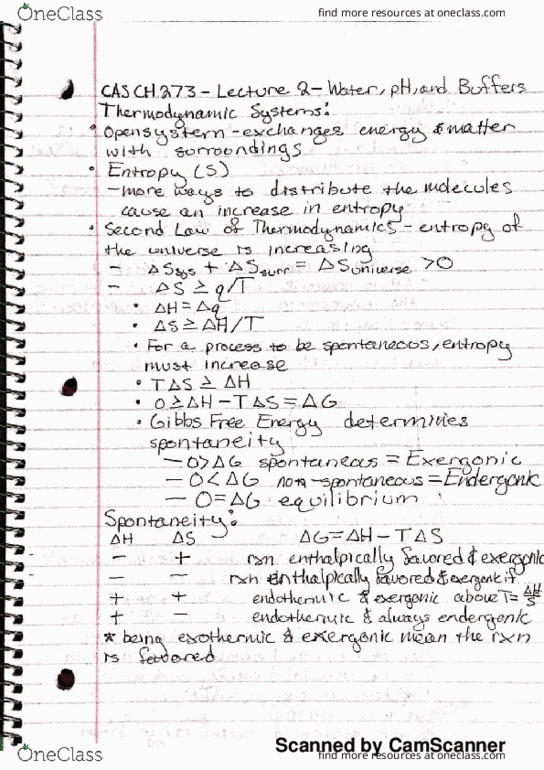 OneClass
find more resources at oneclass.com
CAS CH 273 - Lecture 2 - Water, pH, and Buffers
Thermodynamic Systems:
• Open system - exchanges energy & matter
with surroundings
• Entropy (S)
- more ways to distribute the molecules
cause an increase in entropy
• Second Law of Thermodynamics - entropy of
the universe is increasing
- ΔSsys + ΔSsurr = ΔSuniverse >0
- ΔS ≥ q/T
• ΔH = Δq
• ΔS ≥ ΔH/T
• For a process to be spontaneous, entropy
must increase
• TΔS ≥ ΔH
• 0 ≥ ΔH - TΔS = ΔG
• Gibbs Free Energy determines
spontaneity
- 0>ΔG spontaneous = Exergonic
- 0<ΔG non-spontaneous = Endergonic
- 0=ΔG equilibrium
Spontaneity:
ΔH ΔS ΔG=ΔH-TΔS
- + rxn enthalpically favored & exergonic
- - rxn enthalpically favored & exergonic if
+ + endothermic & exergonic above T= ΔH/S
+ - endothermic & always endergonic
* being exothermic & exergonic mean the rxn
is favored
Scanned by CamScanner
OneClass
find more resources at oneclass.com